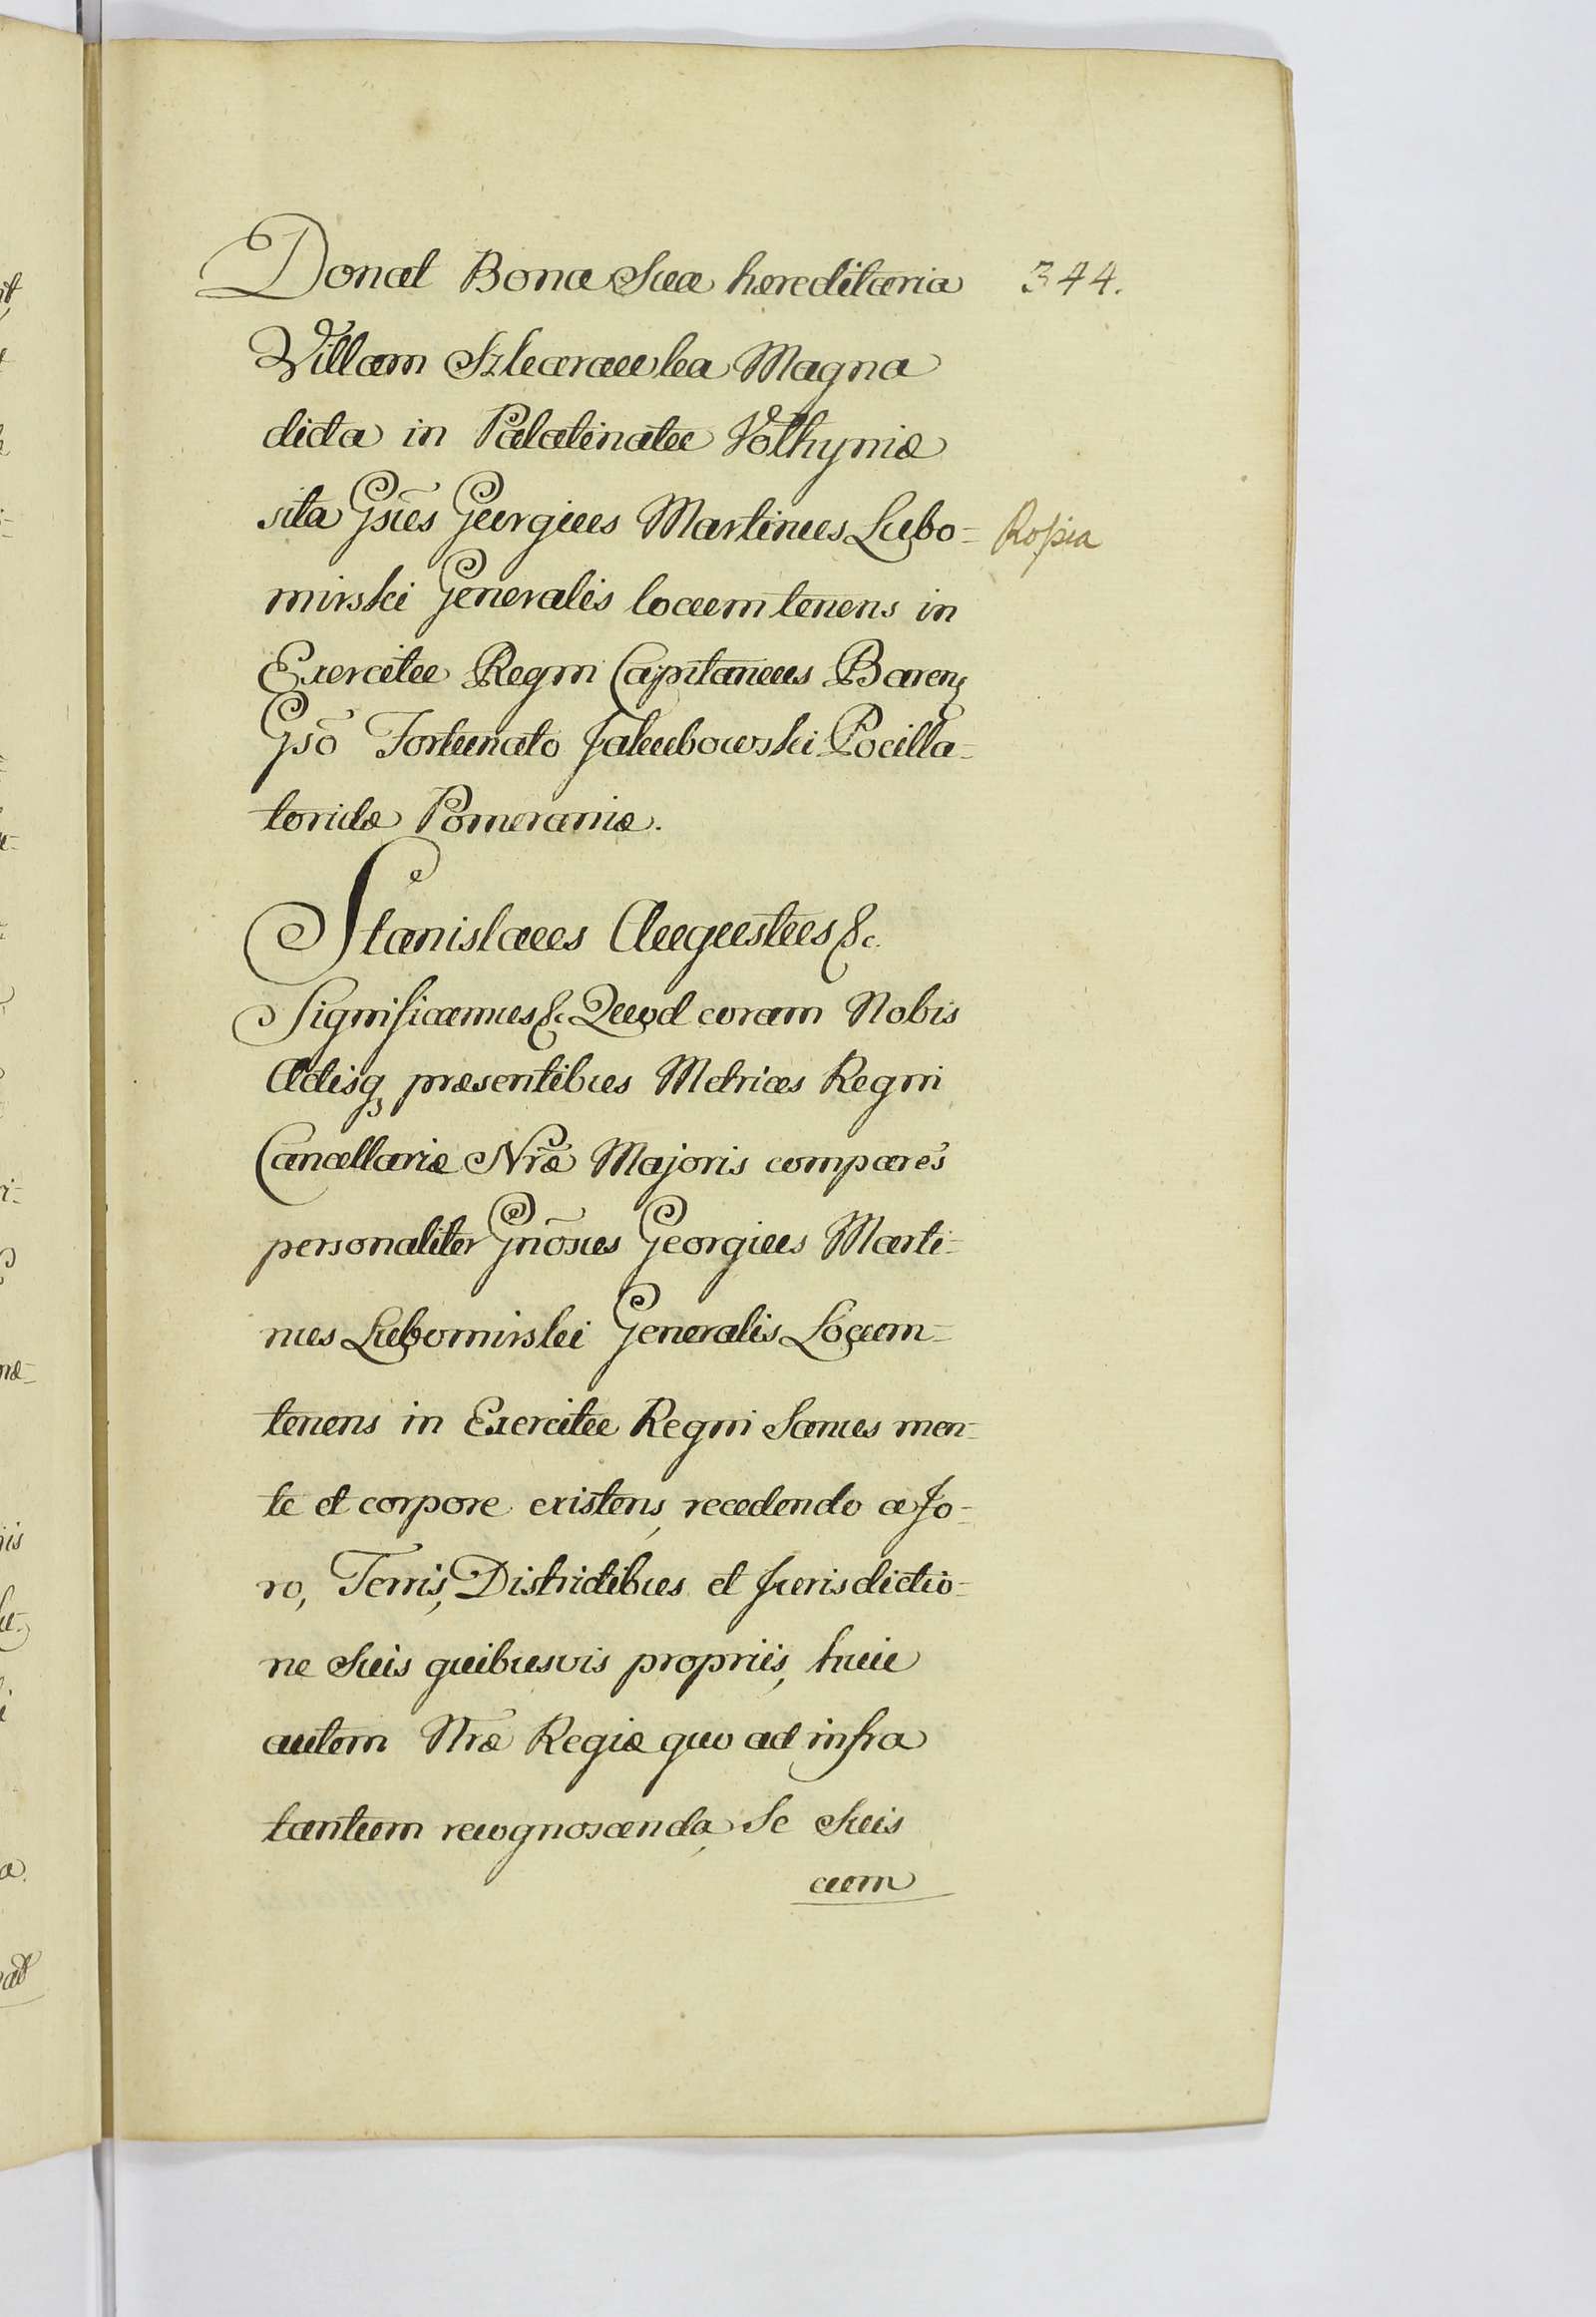 Donat Bona Sua hæreditaria 344.
Villam Szkarawka Magna
dicta in Palatinatu Volhyniæ
sita Gsus Georgius Martinus Lubo=
Kopia
mirski Generalis locum tenens in
Exercitu Regni Capitaneus Baren
Gso Fortunato Jakubowski Pocilla=
toridæ Pomeraniæ.
Stanislaus Augustus &c.
Significamus &c. Quod coram Nobis
Actisq præsentibus Metrices Regni
Cancellariæ Nræ Majoris compares
personaliter Gnosus Georgius Marti=
nus Lubomirski Generalis Locum=
tenens in Exercitu Regni Sanus men=
te et corpore existens, recedendo a fo=
ro, Terris, Districtibus et Jurisdictio=
ne Suis quibusvis propriis, huic
autem Nræ Regiæ quo ad infra
tantum recognoscenda, Se Suis
cum